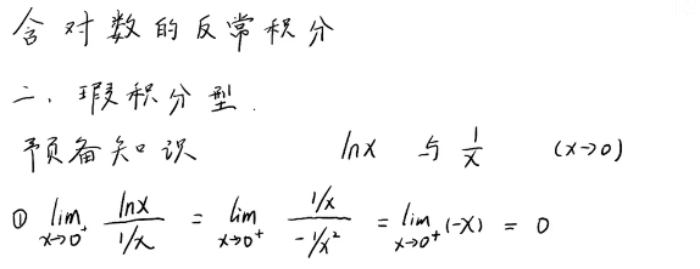 含对数的反常积分
二、瑕积分型.
预备知识 lnx 与 1/x (x→0)
① lim_{x→0⁺} lnx / (1/x) = lim_{x→0⁺} (1/x) / (-1/x²) = lim_{x→0⁺} (-x) = 0